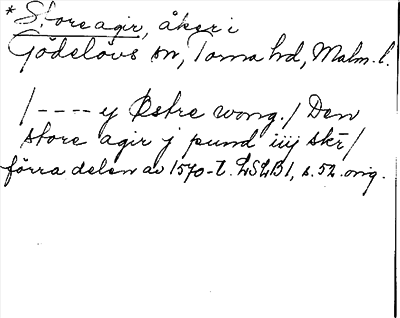 * Store agir, åker i
Gödelövs sn, Torna hd, Malm. l.
/ - - - - y Østre wong. / Den
store agir j pund iiij skr /
förra delen av 1570-t. LSLB 1, s. 52. orig.